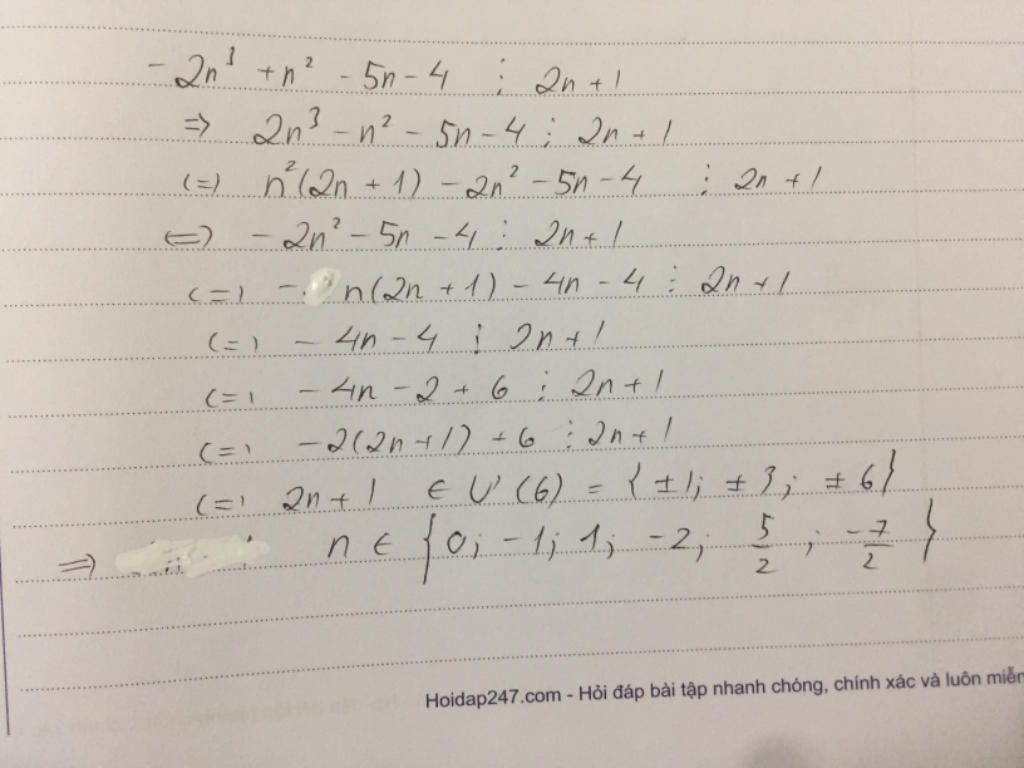 - 2n³ + n² - 5n - 4 ⋮ 2n + 1
=> 2n³ - n² - 5n - 4 ⋮ 2n + 1
(=) n²(2n + 1) - 2n² - 5n - 4 ⋮ 2n + 1
<=> - 2n² - 5n - 4 ⋮ 2n + 1
(=) - n(2n + 1) - 4n - 4 ⋮ 2n + 1
(=) - 4n - 4 ⋮ 2n + 1
(=) - 4n - 2 + 6 ⋮ 2n + 1
(=) - 2(2n + 1) + 6 ⋮ 2n + 1
(=) 2n + 1 ∈ Ư(6) = {±1; ±3; ±6}
=> n ∈ {0; -1; 1; -2; 5/2; -7/2}
Hoidap247.com - Hỏi đáp bài tập nhanh chóng, chính xác và luôn miễn